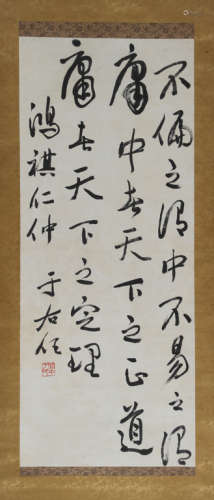 不偏之谓中不易之谓
庸中者天下之正道
庸者天下之定理
鴻祺仁仲
于右任